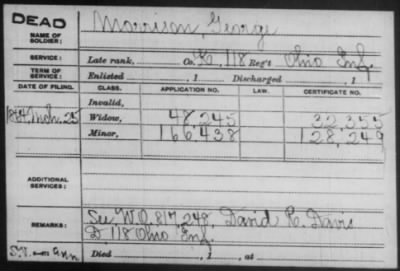 DEAD
NAME OF SOLDIER: Morrison, George
SERVICE: Late rank, Co. K, 118 Reg't Ohio Inf.
TERM OF SERVICE: Enlisted , 1 Discharged , 1
DATE OF FILING. CLASS. APPLICATION NO. LAW. CERTIFICATE NO.
Invalid,
1864, Mch. 25 Widow, 48,245 32,355
Minor, 166,438 128,249
ADDITIONAL SERVICES:
REMARKS: See W.O. 817,249, David R. Davis
D 118 Ohio Inf.
Died , 1 , at